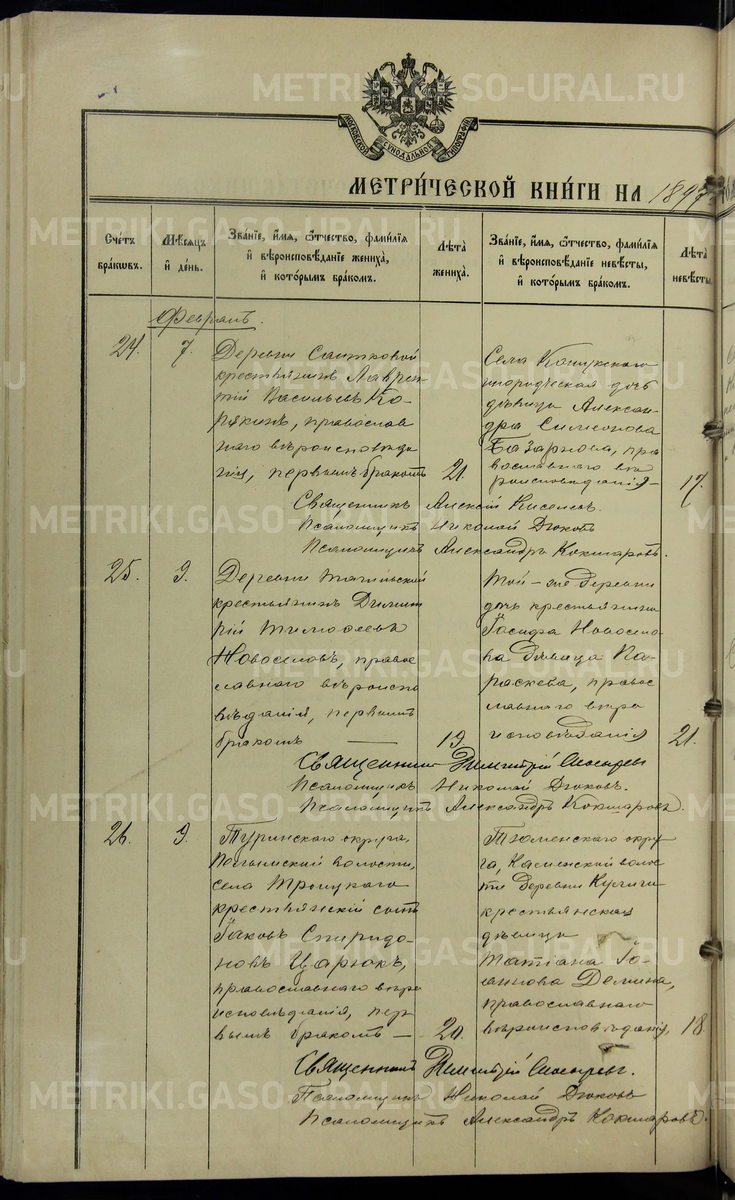 МОСКОВСКОЙ СѴНОДАЛЬНОЙ ТИПОГРАФІИ
МЕТРИ́ЧЕСКОЙ КНИ́ГИ НА 1897
Сче́тъ бра́кωвъ.
Мѣ́сяцъ и҆ де́нь.
Зва́нїе, и҆́мя, ѻ҆́тчество, фами́лїя
и҆ вѣроисповѣ́данїе жениха̀,
и҆ кото́рымъ бра́комъ.
Лѣ́та жениха̀.
Зва́нїе, и҆́мя, ѻ҆́тчество, фами́лїя
и҆ вѣроисповѣ́данїе невѣ́сты,
и҆ кото́рымъ бра́комъ.
Лѣ́та невѣ́сты
Февраль.
24.
7.
Деревни
крестьянинъ Лаврен
тій Васильевъ Ко-
рякинъ, православ
наго вѣроисповѣда
нія, первымъ бракомъ
21.
Села
дочь
дѣвица Алексан
дра Симеонова
Базарнова, пра
вославнаго вѣ
роисповѣданія
17.
Священникъ Алексій Киселевъ.
Псаломщикъ Николай Дюковъ
Псаломщикъ Александръ Кокшаровъ.
25.
9.
Деревни Тагильской
крестьянинъ Димит
рій Тимофеевъ
Новоселовъ, право
славнаго вѣроиспо
вѣданія, первымъ
бракомъ —
19.
Той-же деревни
дочь крестьянина
Іосифа Новосело
ва дѣвица Па-
раскева, право
славнаго вѣро
исповѣданія
21.
Священникъ Димитрій
Псаломщикъ Николай Дюковъ.
Псаломщикъ Александръ Кокшаровъ.
26.
9.
Туринскаго округа,
Пелымской волости,
села Троицкаго
крестьянскій сынъ
Іаковъ Спиридо-
новъ Царюкъ,
православнаго вѣро
исповѣданія, пер
вымъ бракомъ —
20.
Тюменскаго окру-
га, Каменской волос
ти деревни Кулиги
крестьянская
дѣвица
Татіана Іо-
аннова Демина,
православнаго
вѣроисповѣданія,
18
Священникъ Димитрій
Псаломщикъ Николай Дюковъ
Псаломщикъ Александръ Кокшаровъ.
METRIKI.GASO-URAL.RU